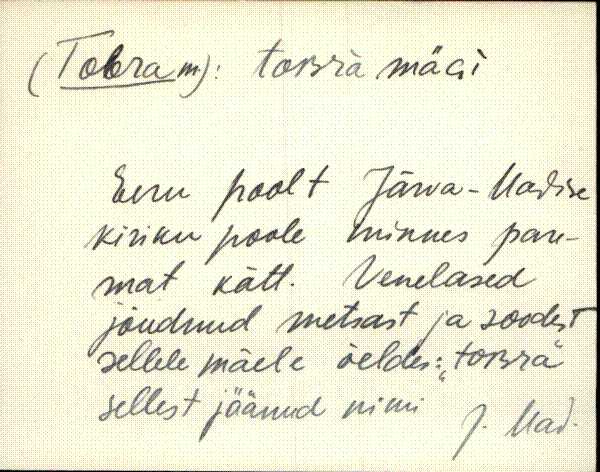 (Tobra m): toʙrà mäɢi
Eeru poolt Järva-Madise
kiriku poole minnes pare-
mat kätt. Venelased
jõudnud metsast ja soodest
sellele mäele öeldes: „toʙrà"
sellest jäänud nimi
J. Mad.